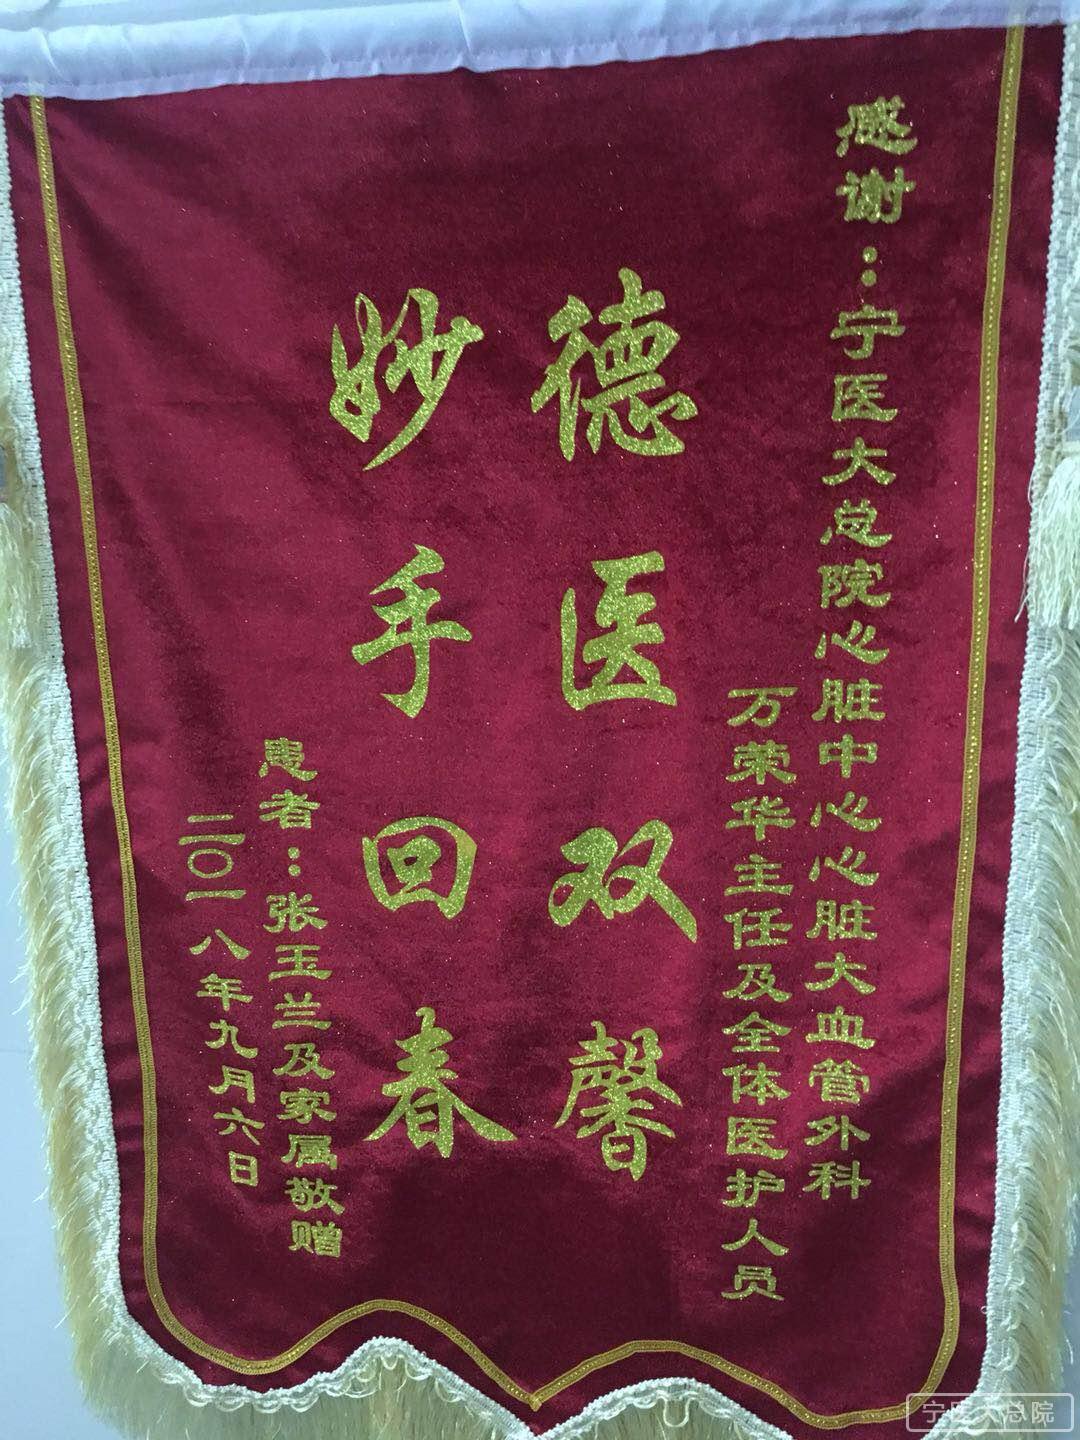 感谢：宁医大总院心脏中心心脏大血管外科
万荣华主任及全体医护人员
德医双馨
妙手回春
患者：张玉兰及家属敬赠
二〇一八年九月六日
宁医大总院